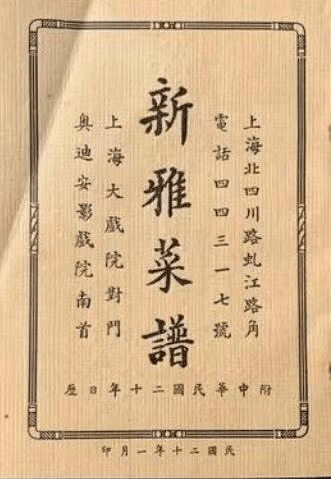 上海北四川路虬江路角
電話四四三一七號
新雅菜譜
上海大戲院對門
奥迪安影戲院南首
附中華民國二十年日歷
民國二十年一月印